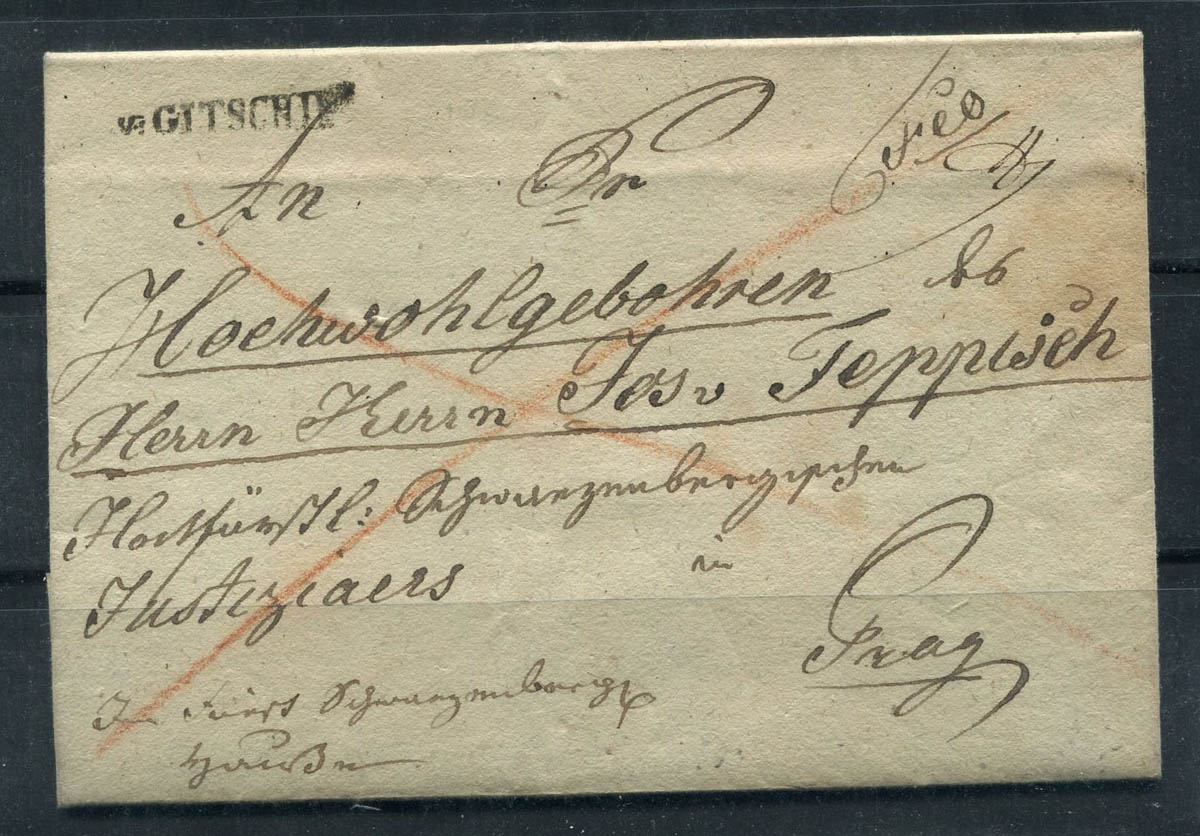 v: GITSCHIN
An Sr
Hochwohlgebohren des
Herrn Herrn Jos v Teppisch
Hochfürstl: Schwarzenbergischen
Justiziaers in
Prag
Im Fürst Schwarzenberg
Hauße